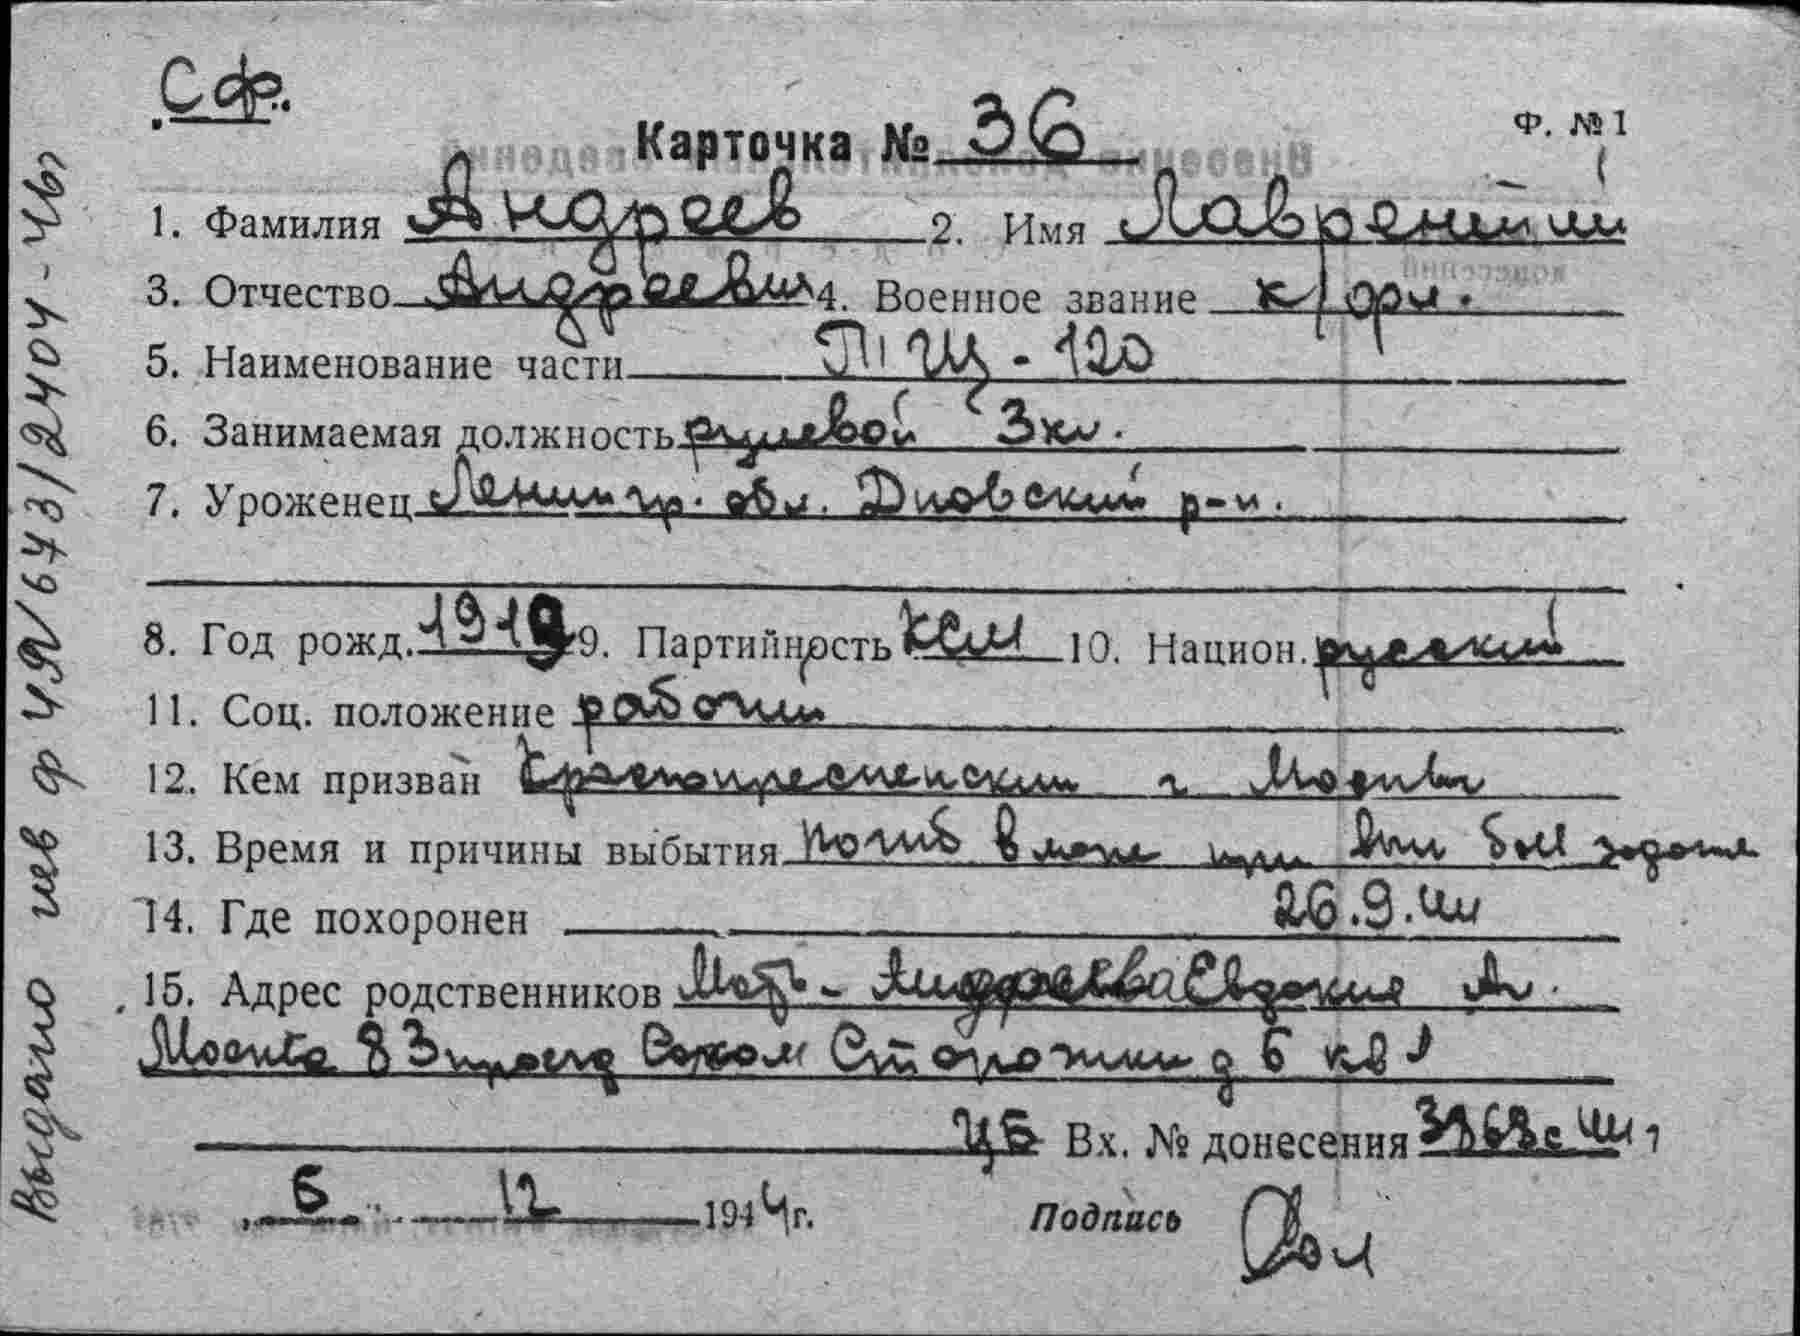 Сф.
Ф. №1
Карточка № 36
1. Фамилия Андреев 2. Имя Лаврентий
3. Отчество Андреевич 4. Военное звание к/фл.
5. Наименование части П Щ-120
6. Занимаемая должность рулевой 3 кл.
7. Уроженец Ленингр. обл. Дновский р-н.
8. Год рожд. 1919 9. Партийность КСМ 10. Национ. русский
11. Соц. положение рабочий
12. Кем призван Краснопресненским г Москвы
13. Время и причины выбытия погиб в море при вып боев задания
14. Где похоронен 26.9.44
15. Адрес родственников Мать - Андреева Евдокия Ан.
Москва 8 3 проезд Сокол Сторожки д 6 кв 1
ЦБ Вх. № донесения с 44 г
6 12 1944 г.
Подпись
Выдано изв ф 4 973/2404-46